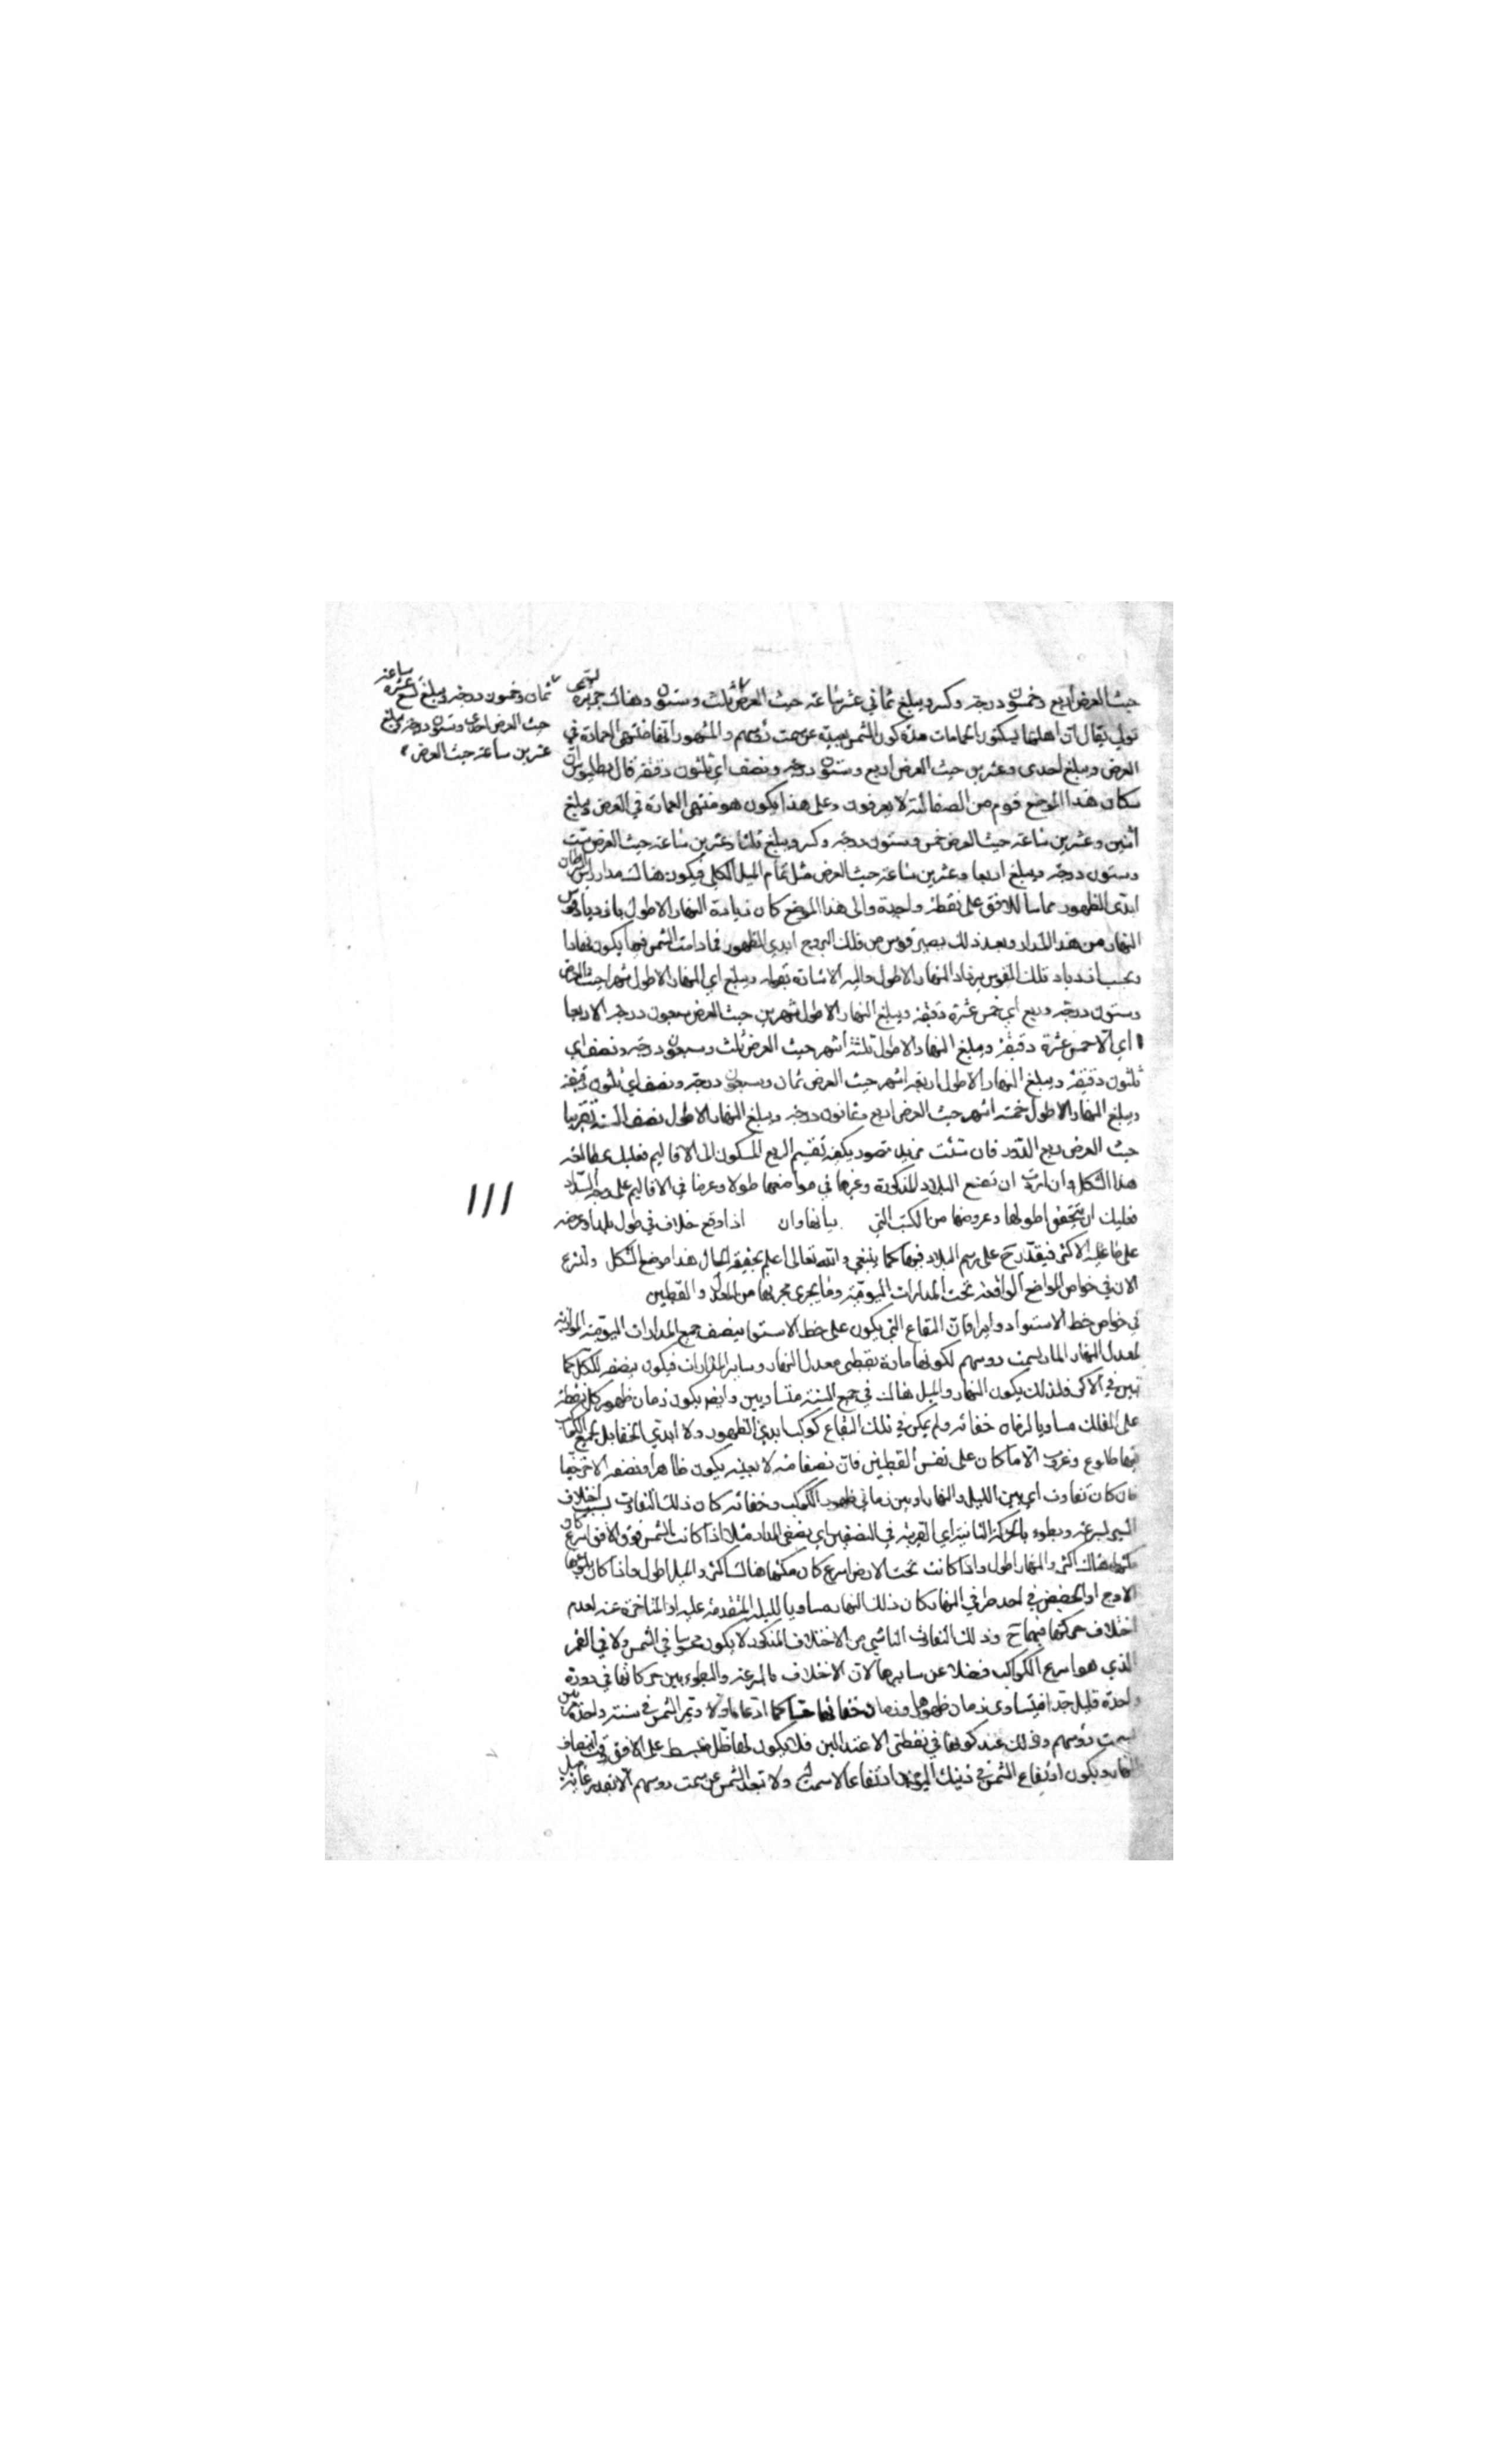 حيث العرض اربع وخمسون درجة وكسر ويبلغ ثماني عشر ساعة حيث العرض وهناك جزيرة تسمى
تولي يقال ان اهلها يسكنون الحمامات مدة كون الشمس بعيدة عن سمت رؤسهم والمشهور انها منتهى العمارة في
العرض ويبلغ احدى وعشرين حيث العرض اربع وستون درجة ونصف اي ثلثون دقيقة قال بطليوس ان
سكان هذا الموضع قوم من الصقالبة لا يعرفون وعلى هذا يكون هو منتهى العمارة في العرض ويبلغ
اثنين وعشرين ساعة حيث العرض خمس وستون درجة وكسر ويبلغ ثلثا وعشرين ساعة حيث العرض ست
وستون درجة ويبلغ اربعا وعشرين ساعة حيث العرض مثل تمام الميل الكلي فيكون هناك مدار راس السرطان
ابدى الظهور مماسا للافق على نقطة واحدة والى هذا الموضع كان زيادة النهار الاطول بازدياد قوس
النهار من هذا المدار وبعد ذلك يصير قوس من فلك البروج ابدي الظهور فما دامت الشمس فيها يكون نهارا
وبحسب ازدياد تلك القوس يزداد النهار الاطول واليه الاشارة بقوله ويبلغ اي النهار الاطول شهرا حيث العرض
وستون درجة وربع اي خمس عشرة دقيقة ويبلغ النهار الاطول شهرين حيث العرض سبعون درجة الا ربعا
اي الا خمس عشرة دقيقة ويبلغ النهار الاطول ثلثة اشهر حيث العرض ثلث وسبعون درجة ونصف اي
ثلثون دقيقة ويبلغ النهار الاطول اربعة اشهر حيث العرض ثمان وسبعون درجة ونصف اي ثلثون دقيقة
ويبلغ النهار الاطول خمسة اشهر حيث العرض اربع وثمانون درجة ويبلغ النهار الاطول نصف السنة تقريبا
حيث العرض ربع الدور فان شئت مزيد تصور بكيفية تقسيم الربع المسكون الى الاقاليم فعليك بمطالعة
هذا الشكل وان اردت ان تضع البلاد المذكورة وغيرها في مواضعها طولا وعرضا في الاقاليم على وجه السداد
فعليك ان تتحقق اطولها وعروضها من الكتب التي بيانها وان اذا وقع خلاف في طول بلد او عرضه
على ما عليه الاكثر فيقدر ح على رسم البلاد فيها كما ينبغي والله تعالى اعلم بحقيقة الحال هذا موضع الشكل ولنشرع
الان في خواص المواضع الواقعة تحت المدارات اليومية وما يجري مجريها من المعدل والقطبين
في خواص خط الاستواء دوائر افاق البقاع التي يكون على خط الاستوا ينصف جميع المدارات اليومية الموازية
لمعدل النهار المار بسمت روسهم لكونها مارة بقطبي معدل النهار وسائر المدارات فيكون منصفة للكل كما
تبين في الاكر فلذلك يكون النهار والليل هناك في جميع السنة متساويين وايض يكون زمان ظهور كل نقطة
على الفلك مساويا لزمان خفائه ولم يكن في تلك البقاع كوكب ابدي الظهور ولا ابدي الخفا بل لجميع الكواكب
فيها طلوع وغروب الا ما كان على نفس القطبين فان نصفا منه لا بعينه يكون ظاهرا ونصفه الاخر خفيا
فان كان تفاوت اي بين الليل والنهار او بين زماني ظهور الكوكب وخفائه كان ذلك التفاوت بسبب اختلاف
السير لسرعته وبطوه بالحركة الثانية اي الغربية في النصفين اي نصفي المدار مثلا اذا كانت الشمس فوق الافق اسرع كان
مكثها هناك اكثر والنهار اطول واذا كانت تحت الارض اسرع كان مكثها هناك اكثر والليل اطول واذا كان بلوغها
الاوج او الحضيض في احد طرفي النهار كان ذلك النهار مساويا لليلة المتقدمة عليه او المتاخرة عنه لعدم
اختلاف حركتها فيهما ح وذلك التفاوت الناشي من الاختلاف المذكور لا يكون محسوسا في الشمس ولا في القمر
الذي هو اسرع الكواكب فضلا عن سايرها لان الاختلاف بالسرعة والبطوء بين حركاتها في دورة
واحدة قليل جدا فيتساوى زمان ظهورها وزمان خفائها حسا كما ادعاه اولا وتمر الشمس في سنة واحدة مرتين
بسمت رؤسهم وذلك عند كونها في نقطتي الاعتدالين فلا يكون لها ظل منبسط على الافق وقت انتصاف
النهار ويكون ارتفاع الشمس في ذينك اليومين ارتفاعا لا سمت له ولا تبعد الشمس عن سمت روسهم الا بقدر غاية ميل
ثمان وخمسون درجة ويبلغ تسع عشرة ساعة
حيث العرض احدى وستون درجة ويبلغ
عشرين ساعة حيث العرض